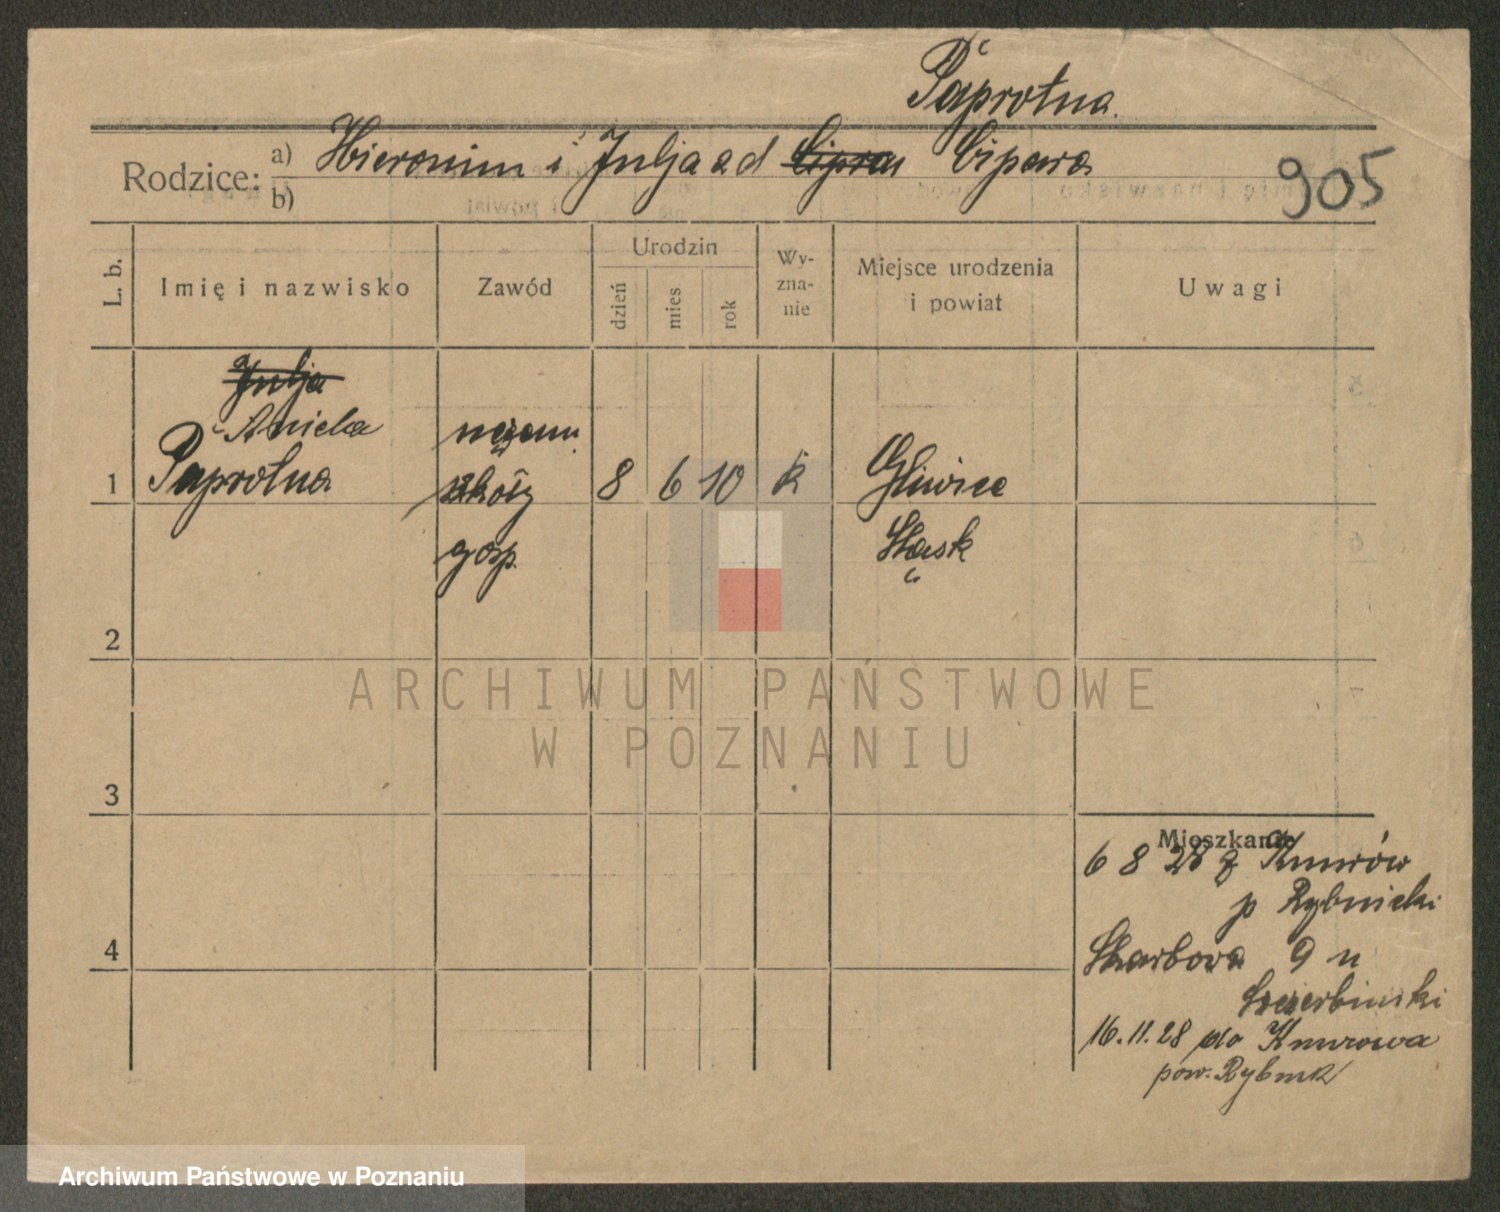 Paprotna.
Rodzice: a) Hieronim i Julja ad Cipra Cipara
b)
905
L. b.
Imię i nazwisko
Zawód
Urodzin
dzień
mies
rok
Wy-
zna-
nie
Miejsce urodzenia
i powiat
Uwagi
Julja
Aniela
Paprotna
1
uczenn.
szkoły
gosp.
8
6
10
k
Gliwice
Śląsk
2
3
4
Mieszkanie
6 8 28 z Knurów
p Rybnicki
Skarbowa 9 u
Szczerbinski
16.11.28 do Knurowa
pow. Rybnik
ARCHIWUM PAŃSTWOWE
W POZNANIU
Archiwum Państwowe w Poznaniu